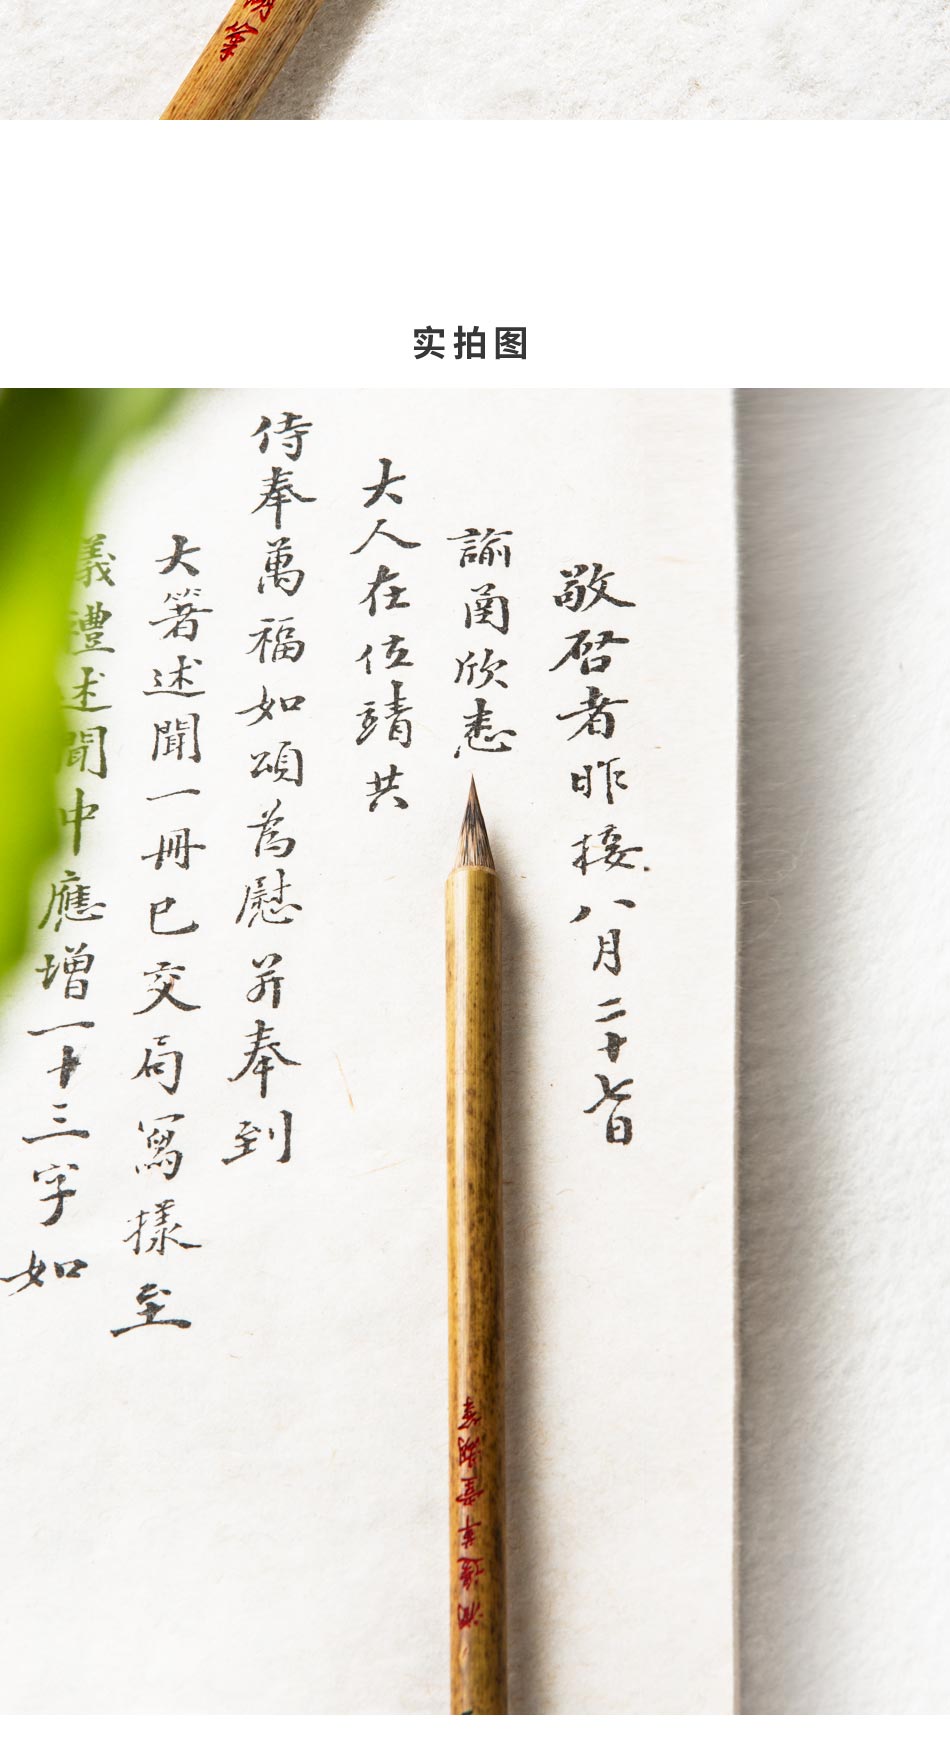 湖筆
实拍图
敬啓者昨接八月二十七日
諭函欣悉
大人在位靖共
侍奉萬福如頌為慰并奉到
大箸述聞一冊已交局寫樣至
義禮述聞中應增一十三字如
湖筆